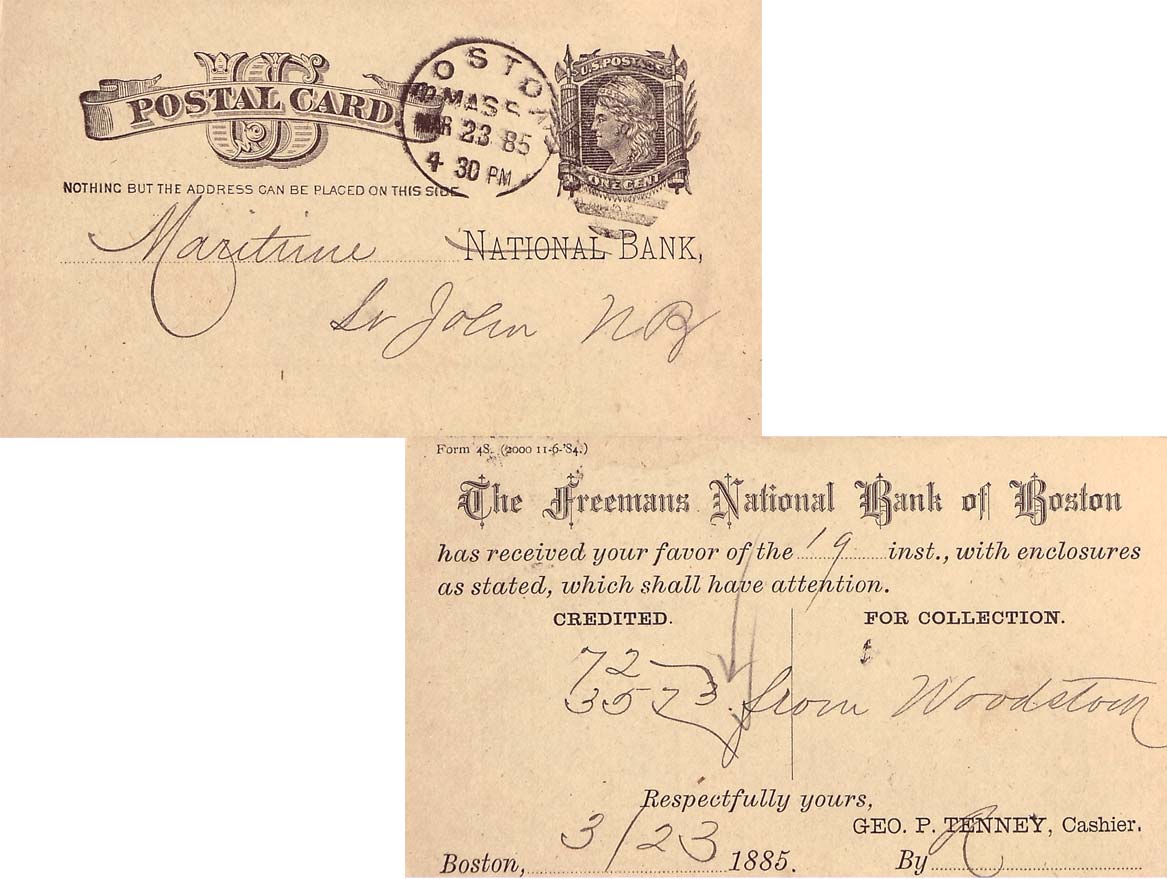 US
POSTAL CARD.
BOSTON
MASS.
MAR 23 85
4 30 PM
U.S. POSTAGE
ONE CENT
NOTHING BUT THE ADDRESS CAN BE PLACED ON THIS SIDE
Maritime NATIONAL BANK,
St John NB
Form 48. (2000 11-6-'84.)
The Freemans National Bank of Boston
has received your favor of the 19 inst., with enclosures
as stated, which shall have attention.
CREDITED. FOR COLLECTION.
72
3573 from Woodstock
Respectfully yours,
GEO. P. TENNEY, Cashier.
Boston, 3/23 1885. By